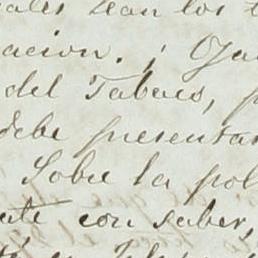 ales sean los t
acion. ; Oja
del Tabaco, p
debe presentar
Sobre la pol
ate con saber,